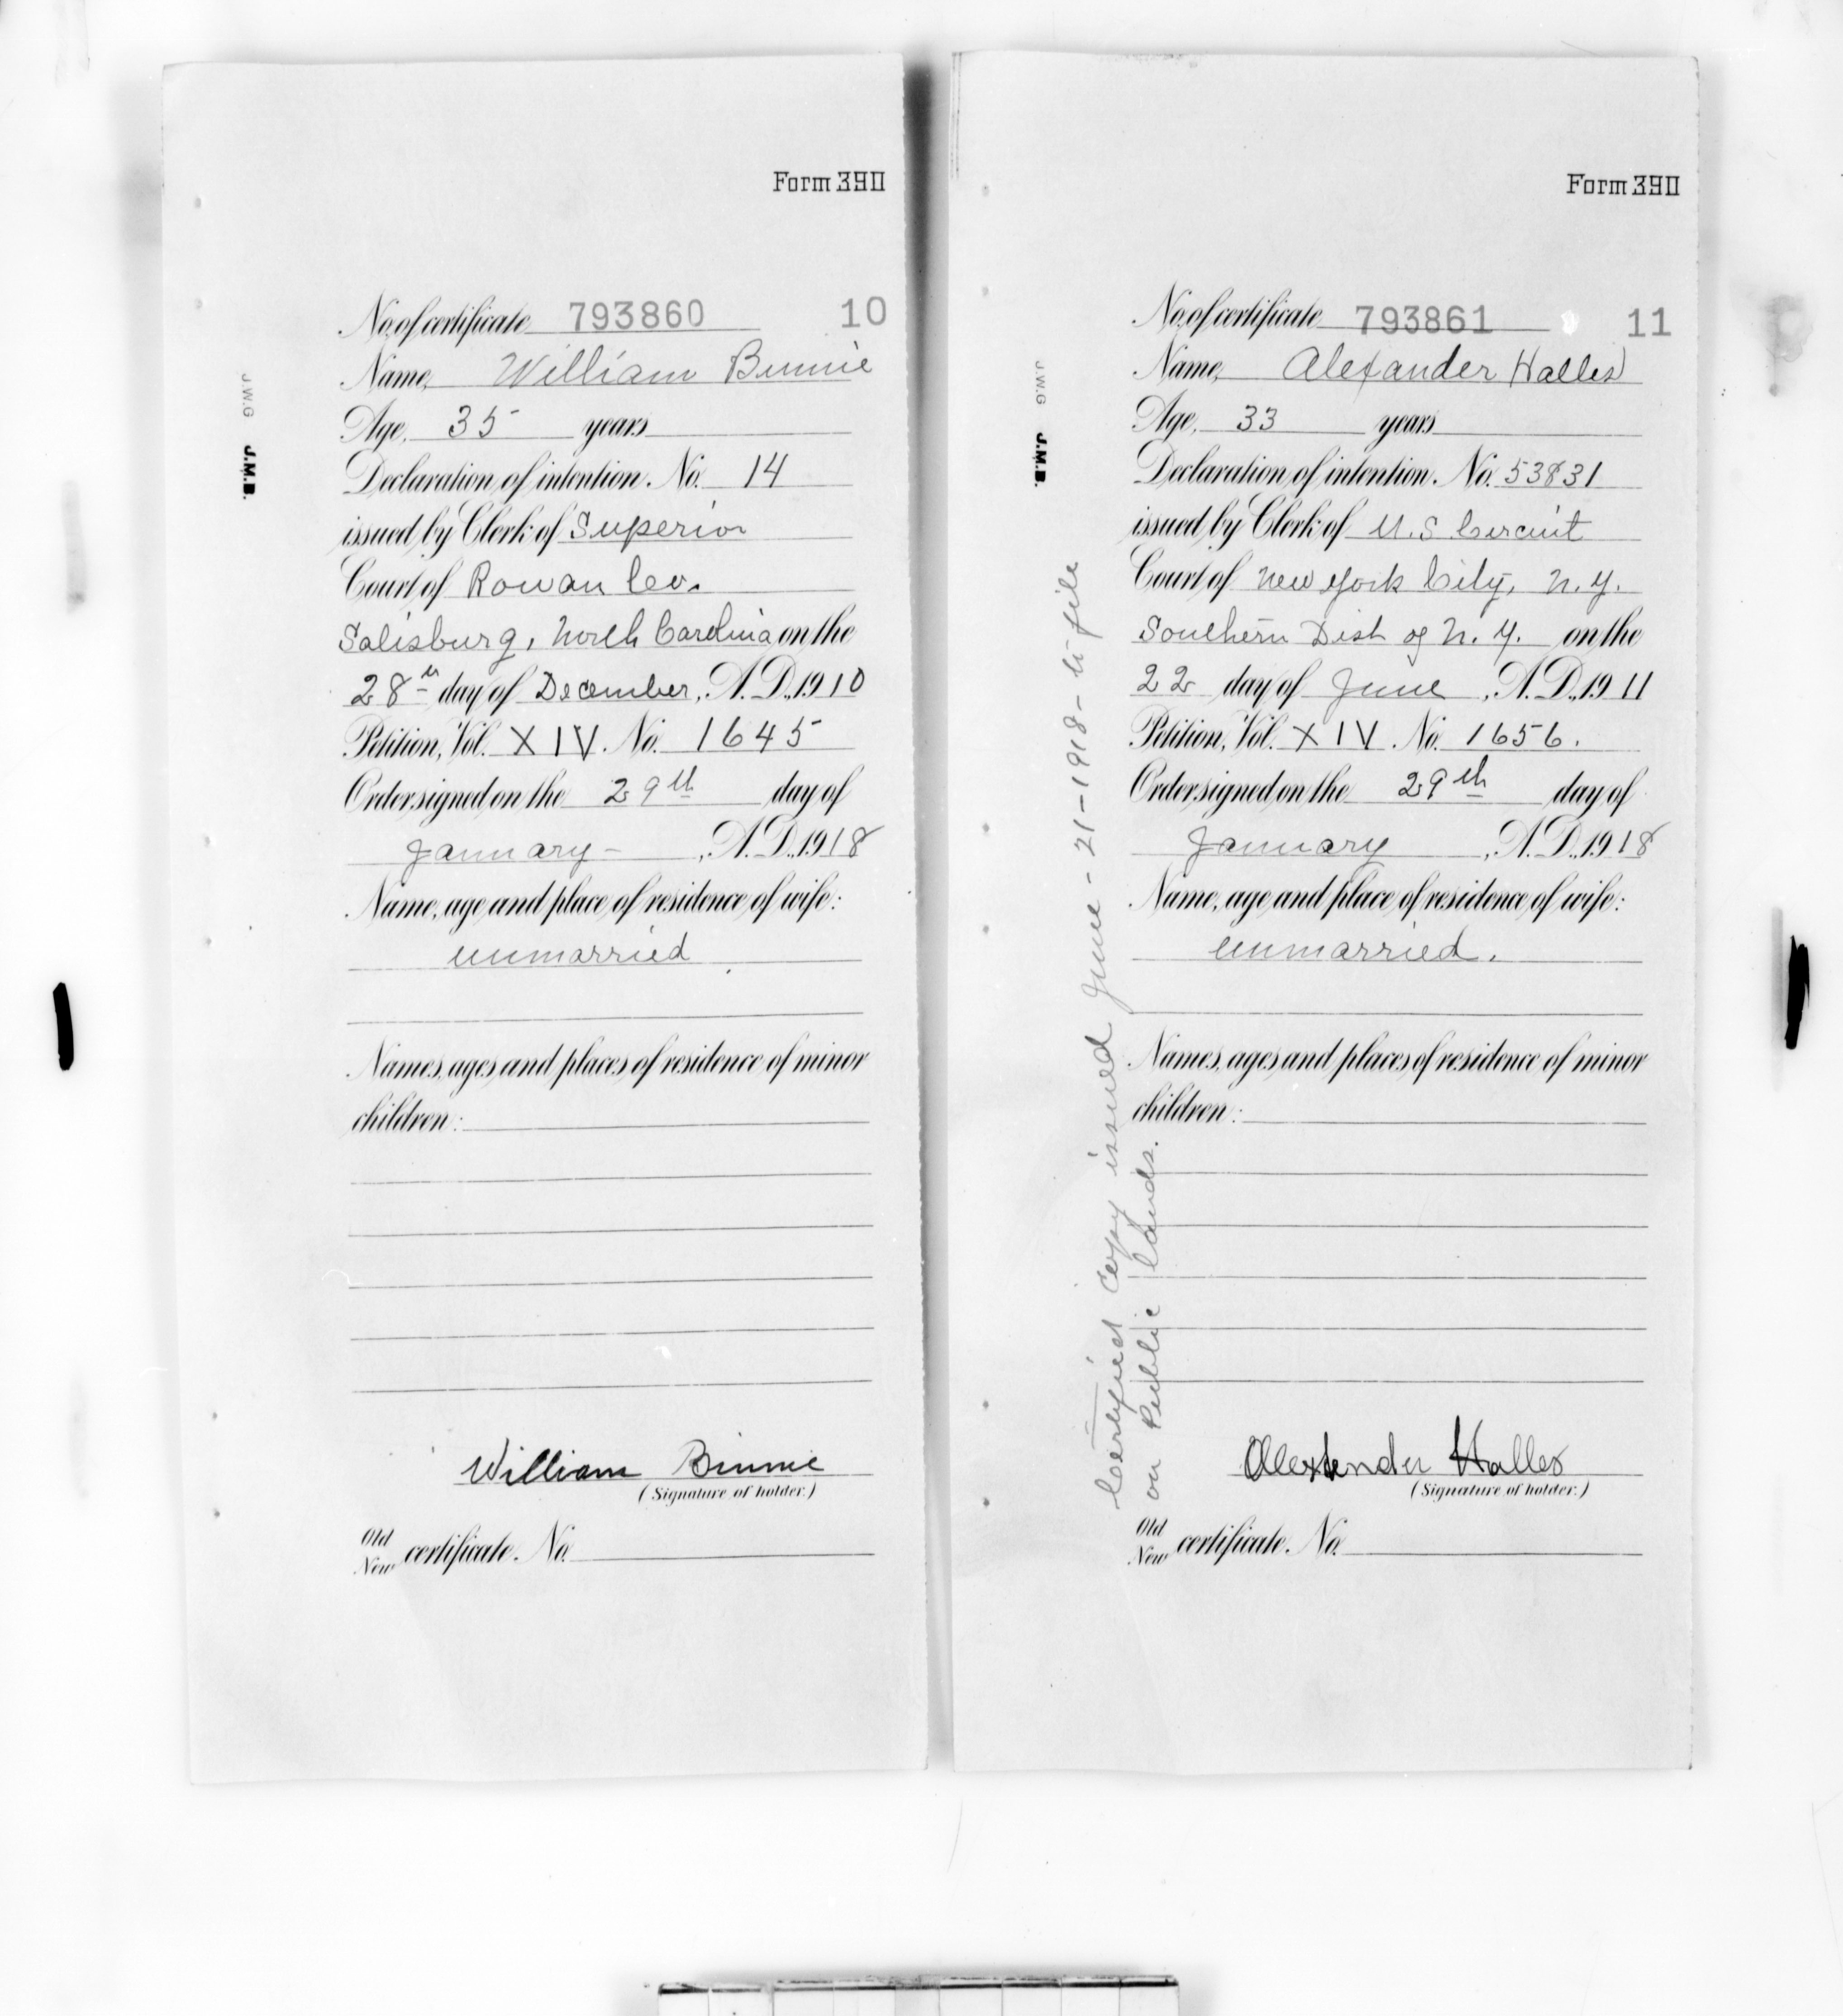 Form 390
No. of certificate 793860 10
Name, William Binnie
Age, 35 years
Declaration of intention. No. 14
issued by Clerk of Superior
Court of Rowan Co.
Salisburg, North Carolina on the
28th day of December, A.D., 1910
Petition, Vol. XIV. No. 1645
Order signed on the 29th day of
January - , A.D., 1918
Name, age and place of residence of wife:
unmarried
Names, ages and places of residence of minor
children:
William Binnie
(Signature of holder.)
Old
New certificate. No.
J.W.G J.M.B.
Form 390
No. of certificate 793861 11
Name, Alexander Halles
Age, 33 years
Declaration of intention. No. 53831
issued by Clerk of U.S Circuit
Court of New York City, N.Y.
Southern Dist of N.Y. on the
22 day of June, A.D., 1911
Petition, Vol. XIV. No. 1656.
Order signed on the 29th day of
January, A.D., 1918
Name, age and place of residence of wife:
unmarried.
Names, ages and places of residence of minor
children:
Alexander Halles
(Signature of holder.)
Old
New certificate. No.
J.W.G J.M.B.
Certified Copy issued June-21-1918-to file
on Public Lands.